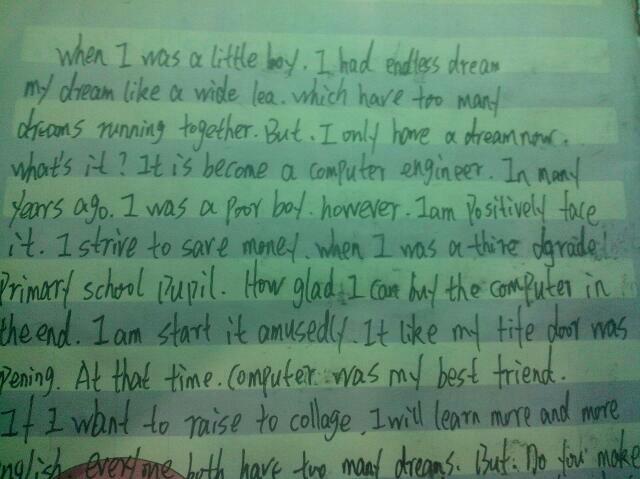 when I was a little boy. I had endless dream
my dream like a wide lea. which have too many
dreams running together. But. I only have a dream now.
what's it? It is become a computer engineer. In many
years ago. I was a poor boy. however. I am positively face
it. I strive to save money. when I was a thire dgrade
Primary school pupil. How glad I can buy the computer in
the end. I am start it amusedly. It like my life door was
pening. At that time. Computer was my best friend.
If I want to raise to collage. I will learn more and more
nglish. everyone both have too many dreams. But. Do you make